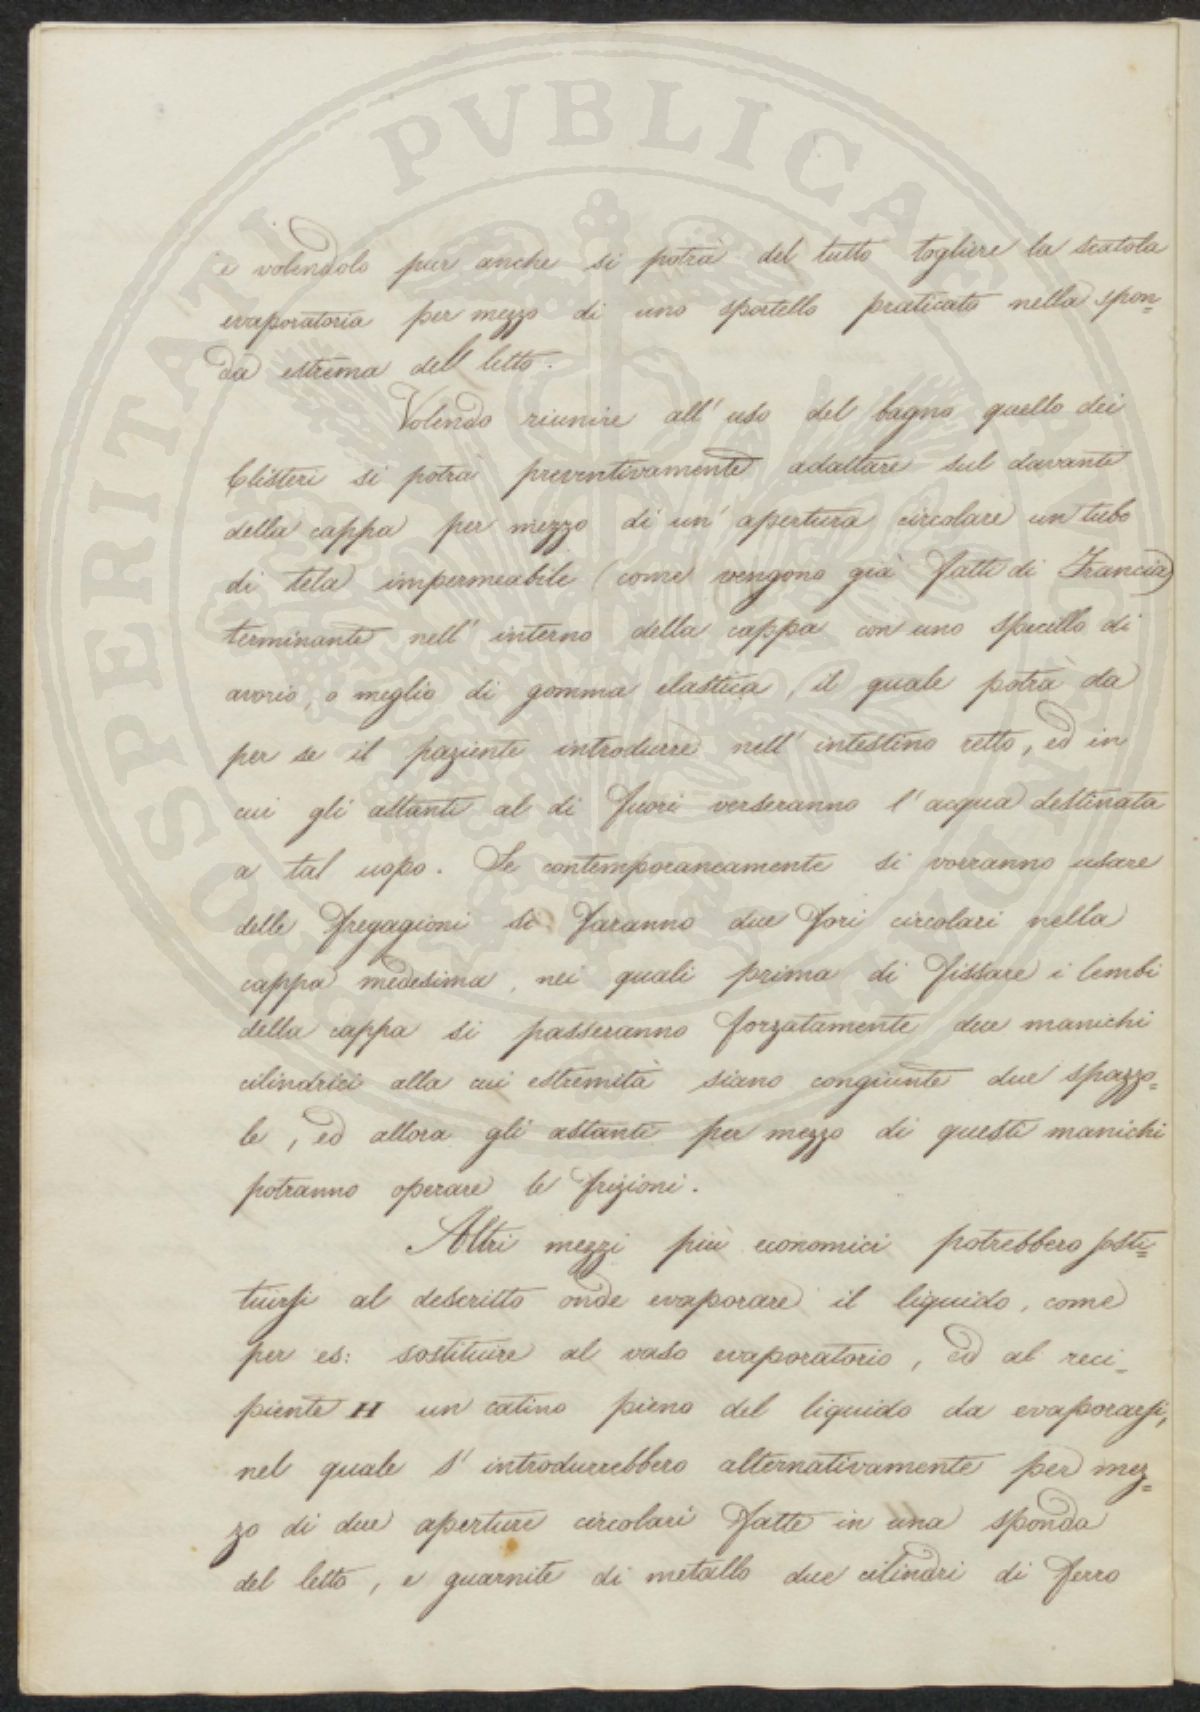 PROSPERITATI PVBLICAE AVGENDAE
e volendolo pur anche si potrà del tutto togliere la scatola
evaporatoria per mezzo di uno sportello praticato nella spon=
da estrema del letto.
Volendo riunire all' uso del bagno quello dei
Clisteri si potrà preventivamente adattare sul davanti
della cappa per mezzo di un' apertura circolare un tubo
di tela impermeabile (come vengono già fatti di Francia)
terminante nell' interno della cappa con uno specillo di
avorio, o meglio di gomma elastica, il quale potrà da
per se il paziente introdurre nell' intestino retto, ed in
cui gli astanti al di fuori verseranno l' acqua destinata
a tal uopo. Se contemporaneamente si vorranno usare
delle fregagioni si faranno due fori circolari nella
cappa medesima, nei quali prima di fissare i lembi
della cappa si passeranno forzatamente due manichi
cilindrici alla cui estremità siano congiunte due spazzo=
le, ed allora gli astanti per mezzo di questi manichi
potranno operare le frizioni.
Altri mezzi più economici potrebbero sosti=
tuirsi al descritto onde evaporare il liquido, come
per es: sostituire al vaso evaporatorio, ed al reci=
piente H un catino pieno del liquido da evaporarsi,
nel quale s' introdurrebbero alternativamente per mez=
zo di due aperture circolari fatte in una sponda
del letto, e guarnite di metallo due cilindri di ferro